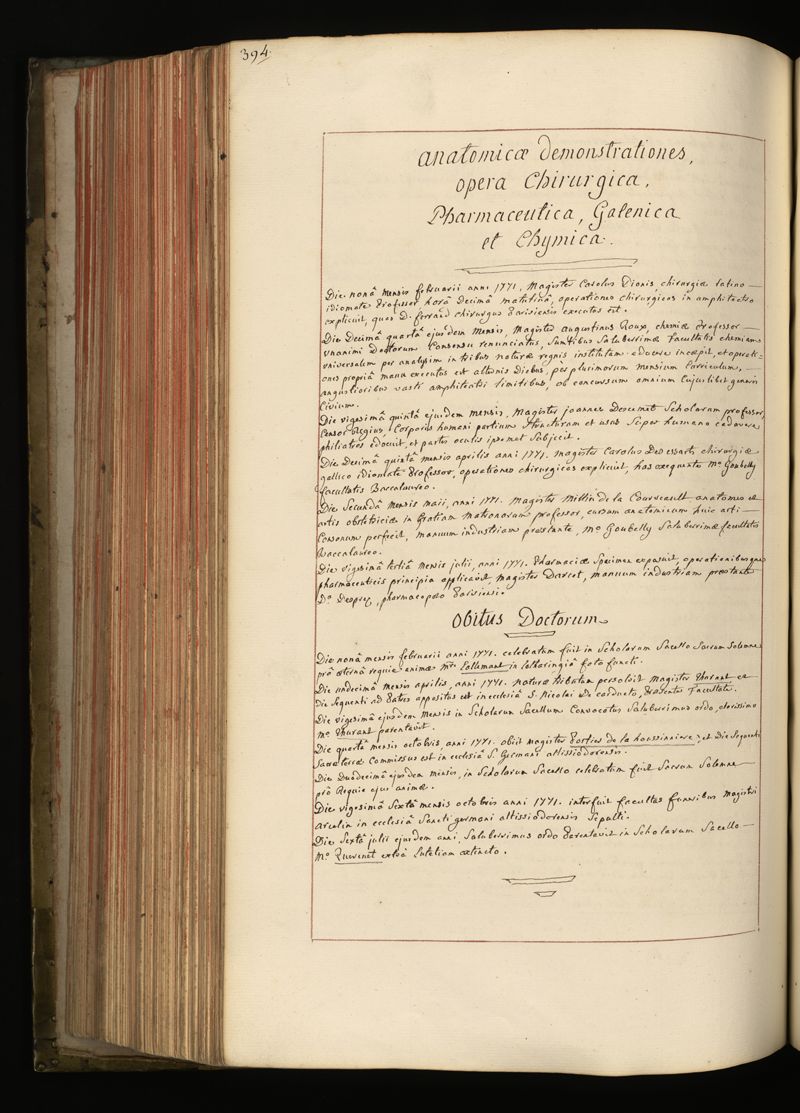 394.
anatomicæ demonstrationes,
opera Chirurgica,
Pharmaceutica, Galenica
et Chymica.
Die nonâ mensis februarii anni 1771. Magister Carolus Dionis, chirurgiæ latino
idiomate Professor horâ Decimâ matutinâ, operationes chirurgicas in amphiteatro
explicuit, quas D. ferrand chirurgus Parisiensis executus est.
Die Decimâ quartâ ejusdem mensis, Magister augustinus Roux, chemiæ Professor
unanimi Doctorum Consensu renunciatus, Sumtibus Saluberrimæ Facultatis chemiam
universalem per analysim in tribus naturæ regnis institutam educere incæpit, et operati-
ones propriâ manu executus est alternis diebus, per plurimorum mensium Curriculum,
angustioribus vasti amphiteatri limitibus, ob concursum omnium Cujuslibet generis
Civium.
Die vigesimâ quintâ ejusdem mensis, Magister joannes Descemet Scholarum professor,
Censor Regius, Corporis humani partium Structuram et usus Super humano cadavere
philiatros edocuit, et partes oculis ipsemet Subjecit.
Die Decimâ quintâ mensis aprilis anni 1771. magister Carolus Desessartz chirurgiæ
gallico idiomate Professor, operationes chirurgicas explicuit, has exequente Mo. Goubelly
facultatis Baccalaureo.
Die Secundâ mensis maii, anni 1771. Magister Millin de la Courveault anatomes et
artis obstetriciæ in Gratiam Matronarum professor, cursum anatomicum huic arti
Consonum perfecit, manuum industriam præstante, Mo. Goubelly Saluberrimæ facultatis
Baccalaureo.
Die vigesimâ tertiâ mensis julii, anni 1771. Pharmaciæ Specimen exposuit, operationibusque
pharmaceuticis principia applicavit, Magister Darcet, manuum industriam præstante
Do. Desprez, pharmacopæo Parisiensi.
Obitus Doctorum
Die nonâ mensis februarii anni 1771. celebratum fuit in Scholarum Sacello Sacrum Solemne
prô æternâ requie animæ Mri. Lallemant in Lotharingiâ fato functi.
Die undecimâ mensis aprilis, anni 1771. naturæ tributum persolvit Magister Thurant et
die Sequenti ad Patres appositus est in ecclesiâ S. Nicolai De Cardueto, Præsente Facultate.
Die vigesimâ ejusdem mensis in Scholarum Sacellum Convocatus Saluberrimus ordo, clarissimo
Mo. Thurant parentavit.
Die quartâ mensis octobris, anni 1771. obiit Magister Porties de la houssiniere, et Die Sequenti
Sacræ terræ Commissus est in ecclesiâ S. Germani altissiodorensis.
Die Duodecimâ ejusdem mensis, in Scholarum Sacello celebratum fuit Sacrum Solemne
prô Requie ejus animæ.
Die vigesimâ Sextâ mensis octobris anni 1771. interfuit facultas funeribus Magistri
Arcelin in ecclesiâ Sancti germani altissiodorensis Sepulti.
Die Sextâ julii ejusdem anni, Saluberrimus ordo Parentavit in Scholarum Sacello
Mo. extrâ Lutetiam extincto.